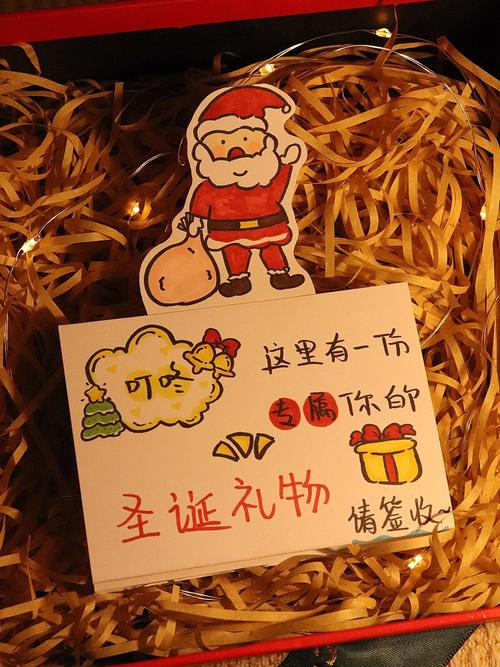 叮咚
这里有一份
专属你的
圣诞礼物
请签收~